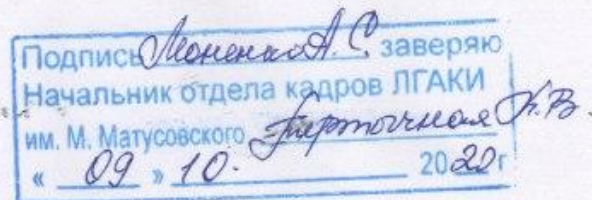 Подпись Моненко А.С. заверяю
Начальник отдела кадров ЛГАКИ
им. М. Матусовского К.В.
« 09 » 10. 2020 г